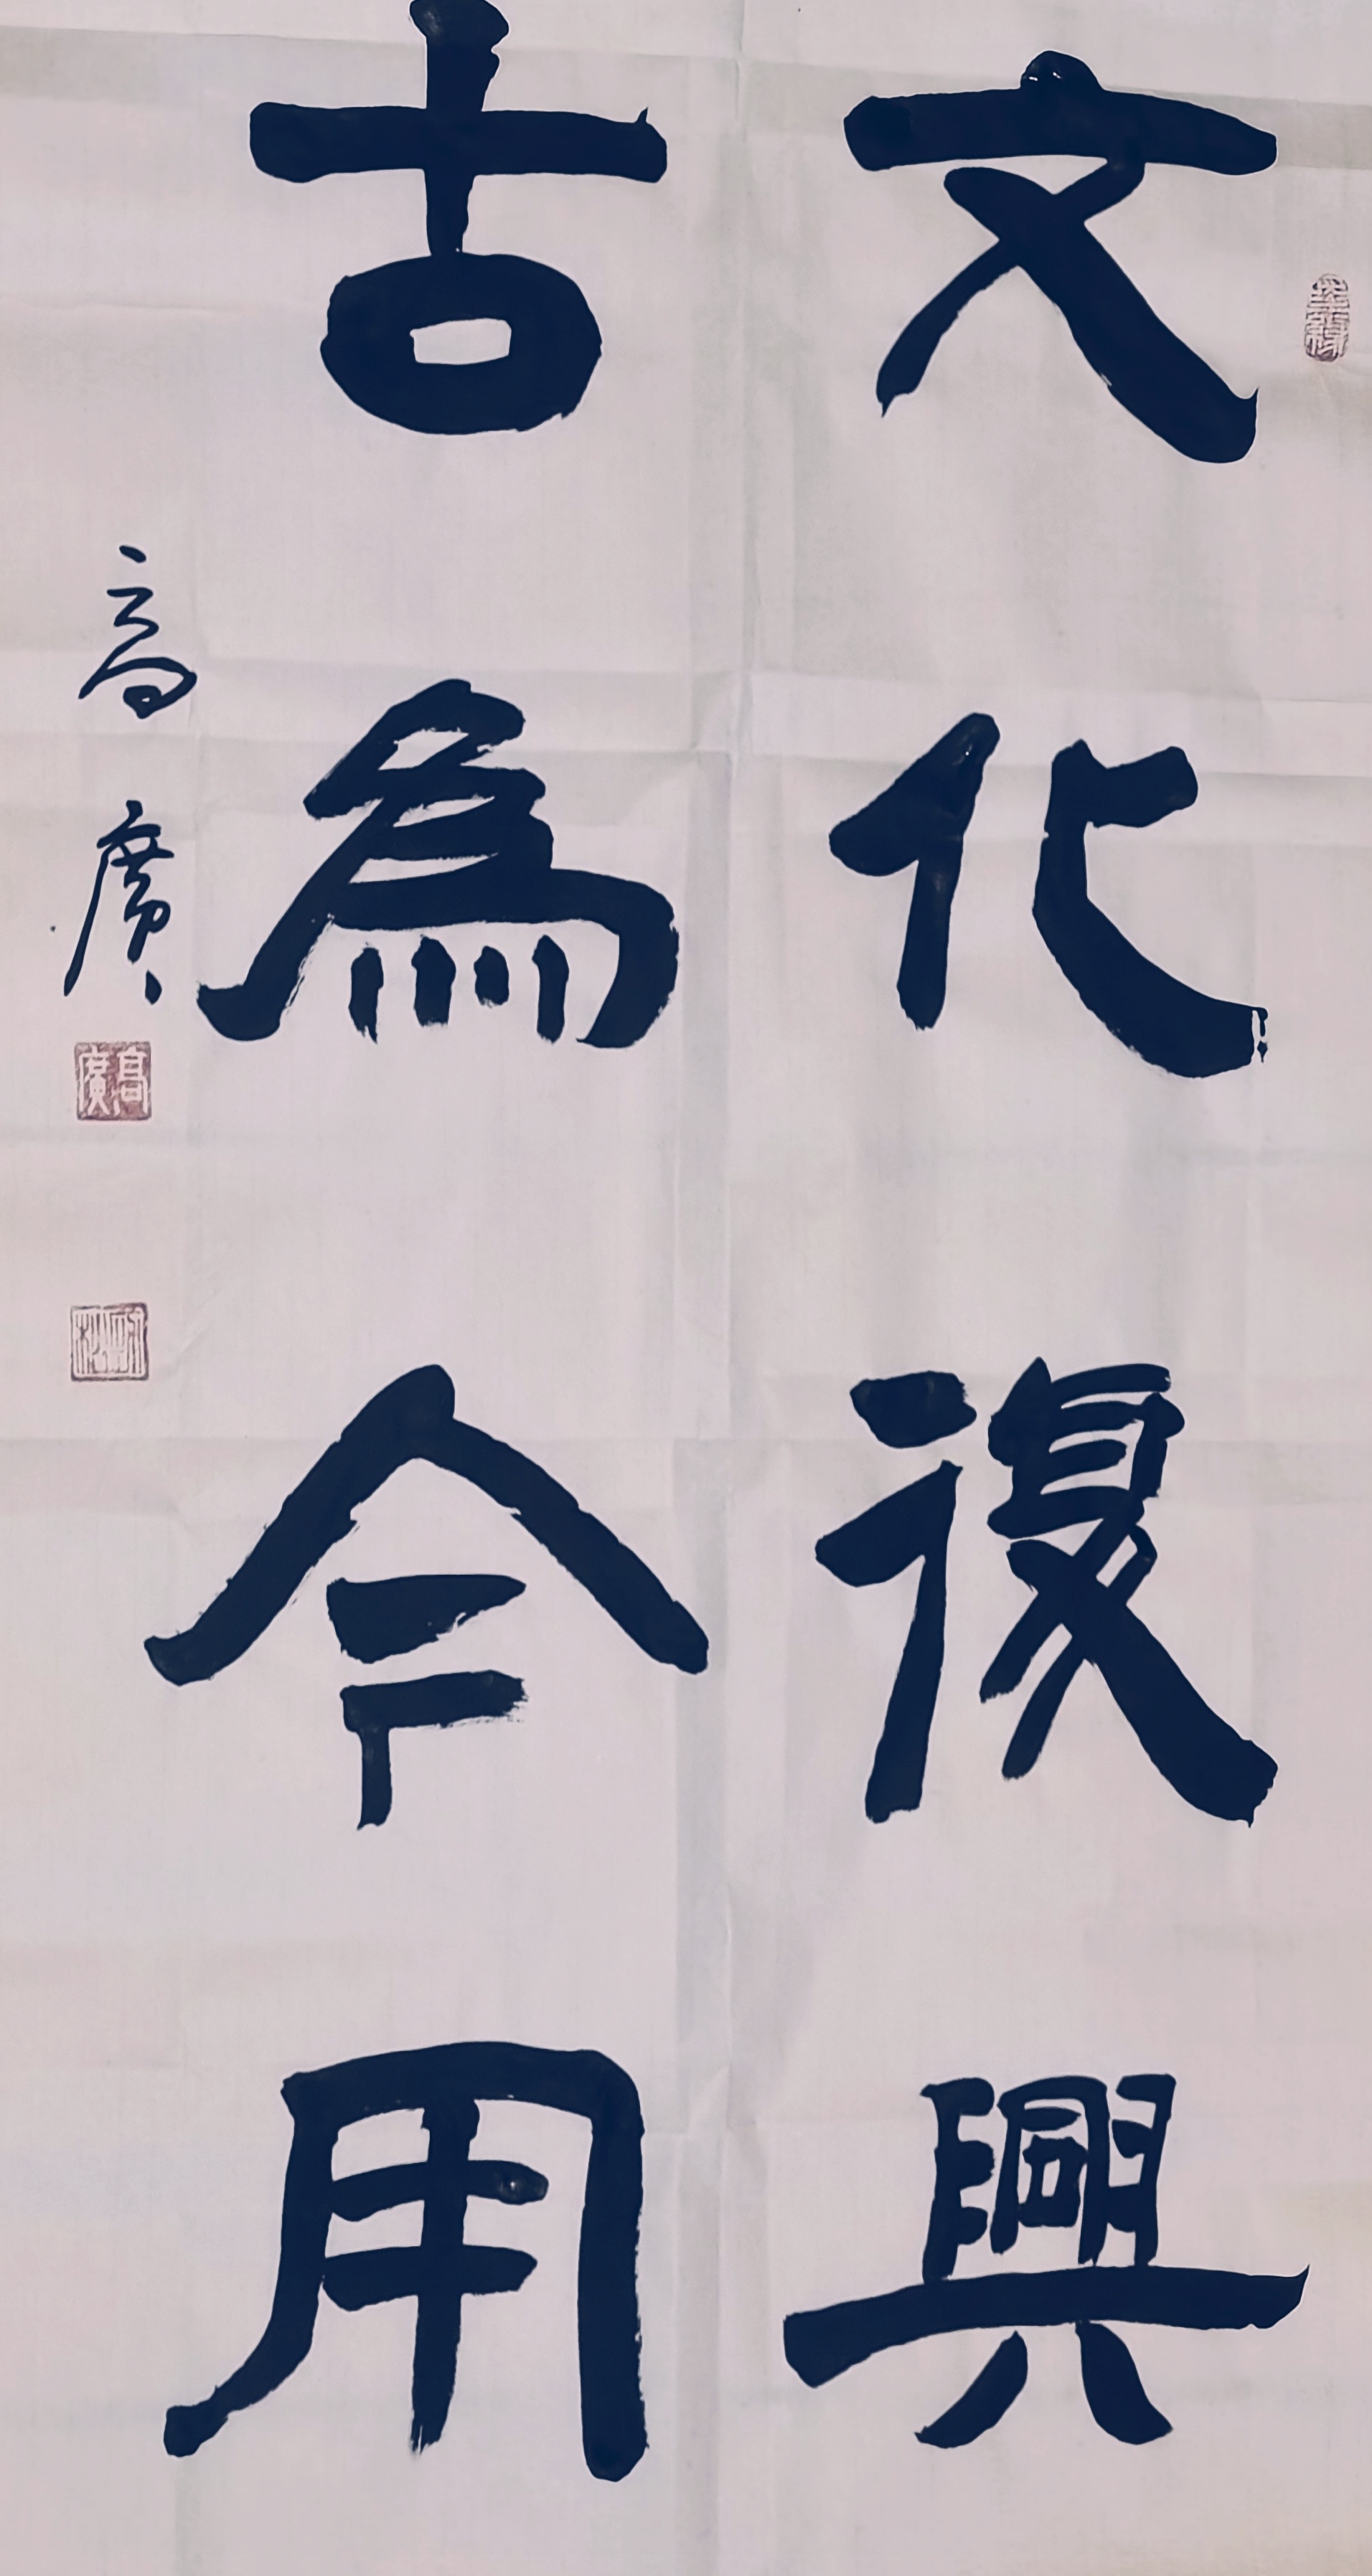 文化復興
古為今用
高廣
高廣